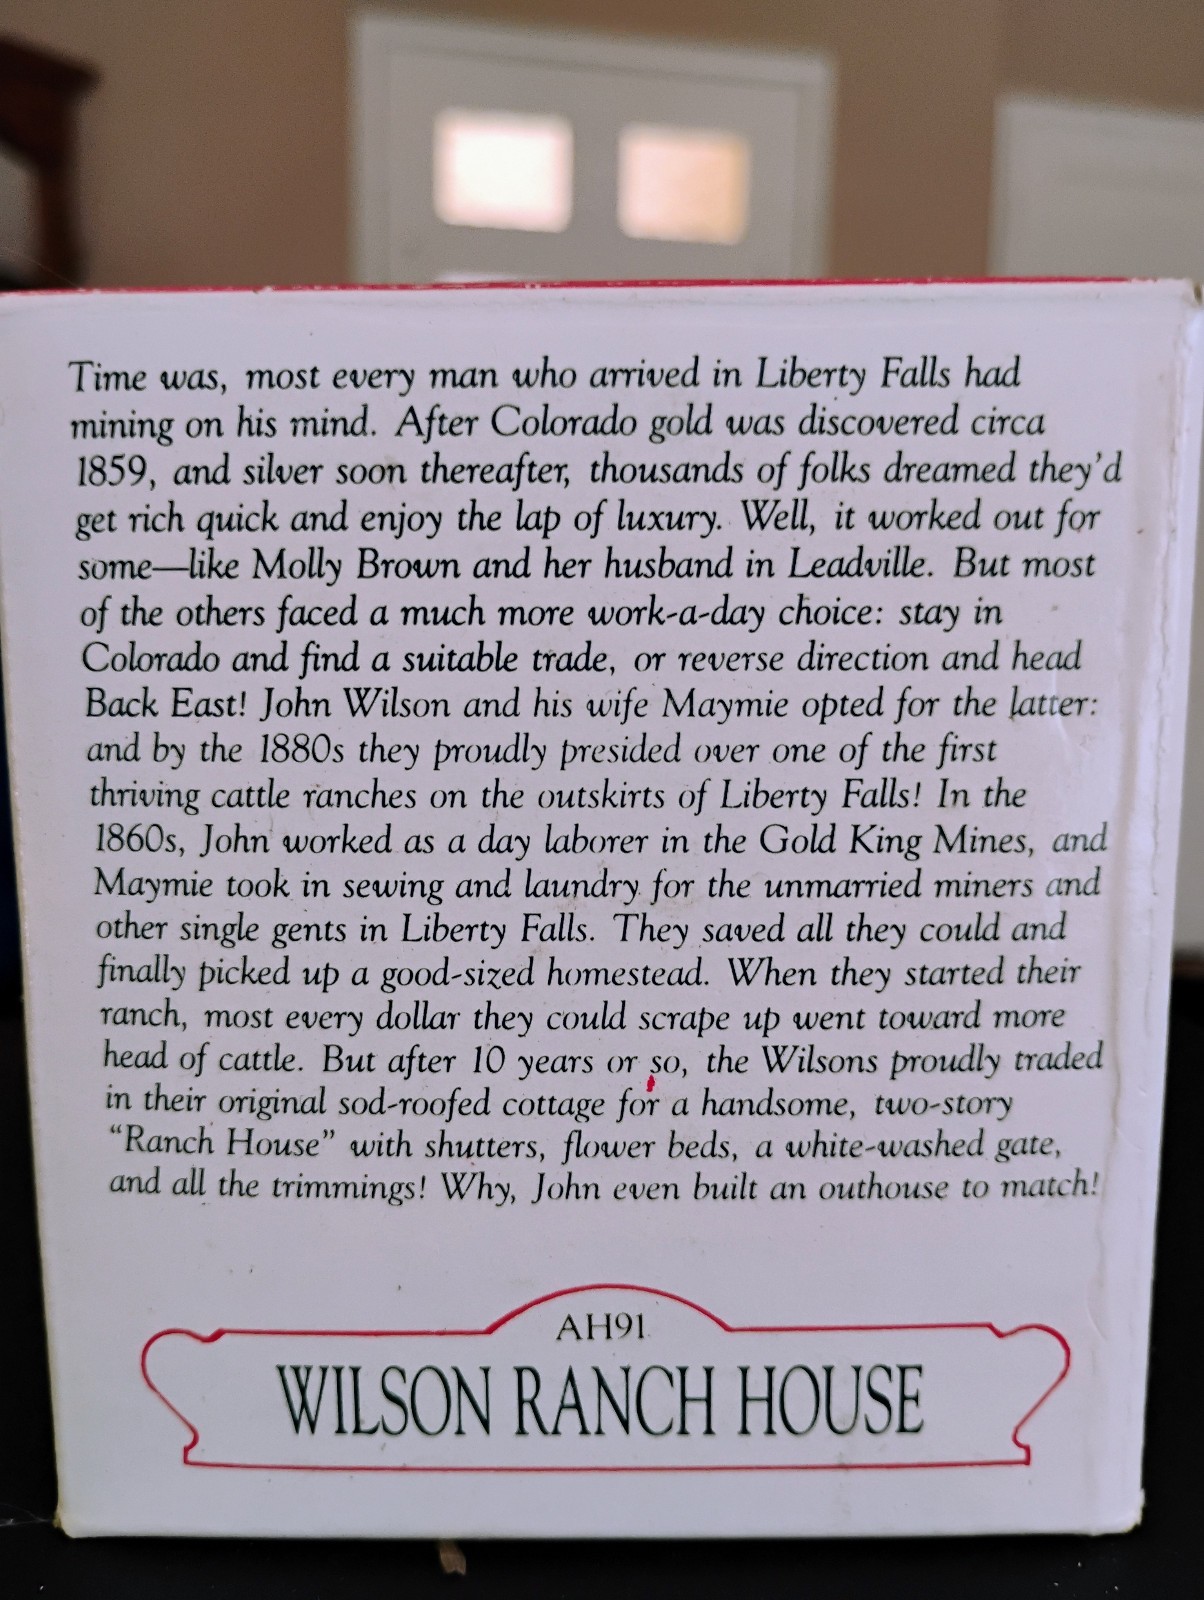 Time was, most every man who arrived in Liberty Falls had
mining on his mind. After Colorado gold was discovered circa
1859, and silver soon thereafter, thousands of folks dreamed they'd
get rich quick and enjoy the lap of luxury. Well, it worked out for
some—like Molly Brown and her husband in Leadville. But most
of the others faced a much more work-a-day choice: stay in
Colorado and find a suitable trade, or reverse direction and head
Back East! John Wilson and his wife Maymie opted for the latter:
and by the 1880s they proudly presided over one of the first
thriving cattle ranches on the outskirts of Liberty Falls! In the
1860s, John worked as a day laborer in the Gold King Mines, and
Maymie took in sewing and laundry for the unmarried miners and
other single gents in Liberty Falls. They saved all they could and
finally picked up a good-sized homestead. When they started their
ranch, most every dollar they could scrape up went toward more
head of cattle. But after 10 years or so, the Wilsons proudly traded
in their original sod-roofed cottage for a handsome, two-story
“Ranch House” with shutters, flower beds, a white-washed gate,
and all the trimmings! Why, John even built an outhouse to match!
AH91
WILSON RANCH HOUSE